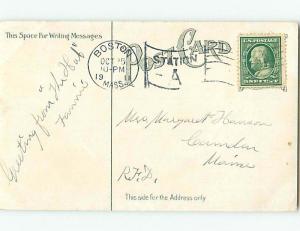 This Space For Writing Messages
POST CARD
BOSTON
OCT 15
10-PM
1911
MASS.
STATION
A
U.S. POSTAGE
Greeting from "The Hub"
Fannie
Mrs. Margaret Hanson
Camden
Maine
R.F.D.
This side for the Address only